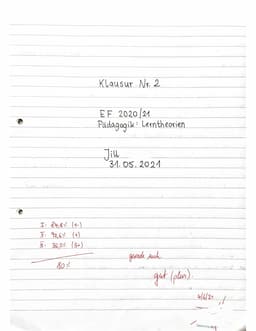 Klausur Nr. 2
EF 2020/21
Pädagogik: Lerntheorien
Jill
31.05.2021
I:
II:
III:
80%
gerade noch
gut (plan).